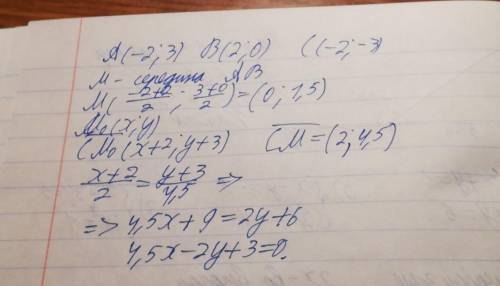 A(-2; 3) B(2; 0) C(-2; -3)
M - середина AB
M(-2+2/2; 3+0/2) = (0; 1,5)
M₀(x; y)
CM₀(x+2; y+3) CM = (2; 4,5)
x+2/2 = y+3/4,5 =>
=> 4,5x + 9 = 2y + 6
4,5x - 2y + 3 = 0.